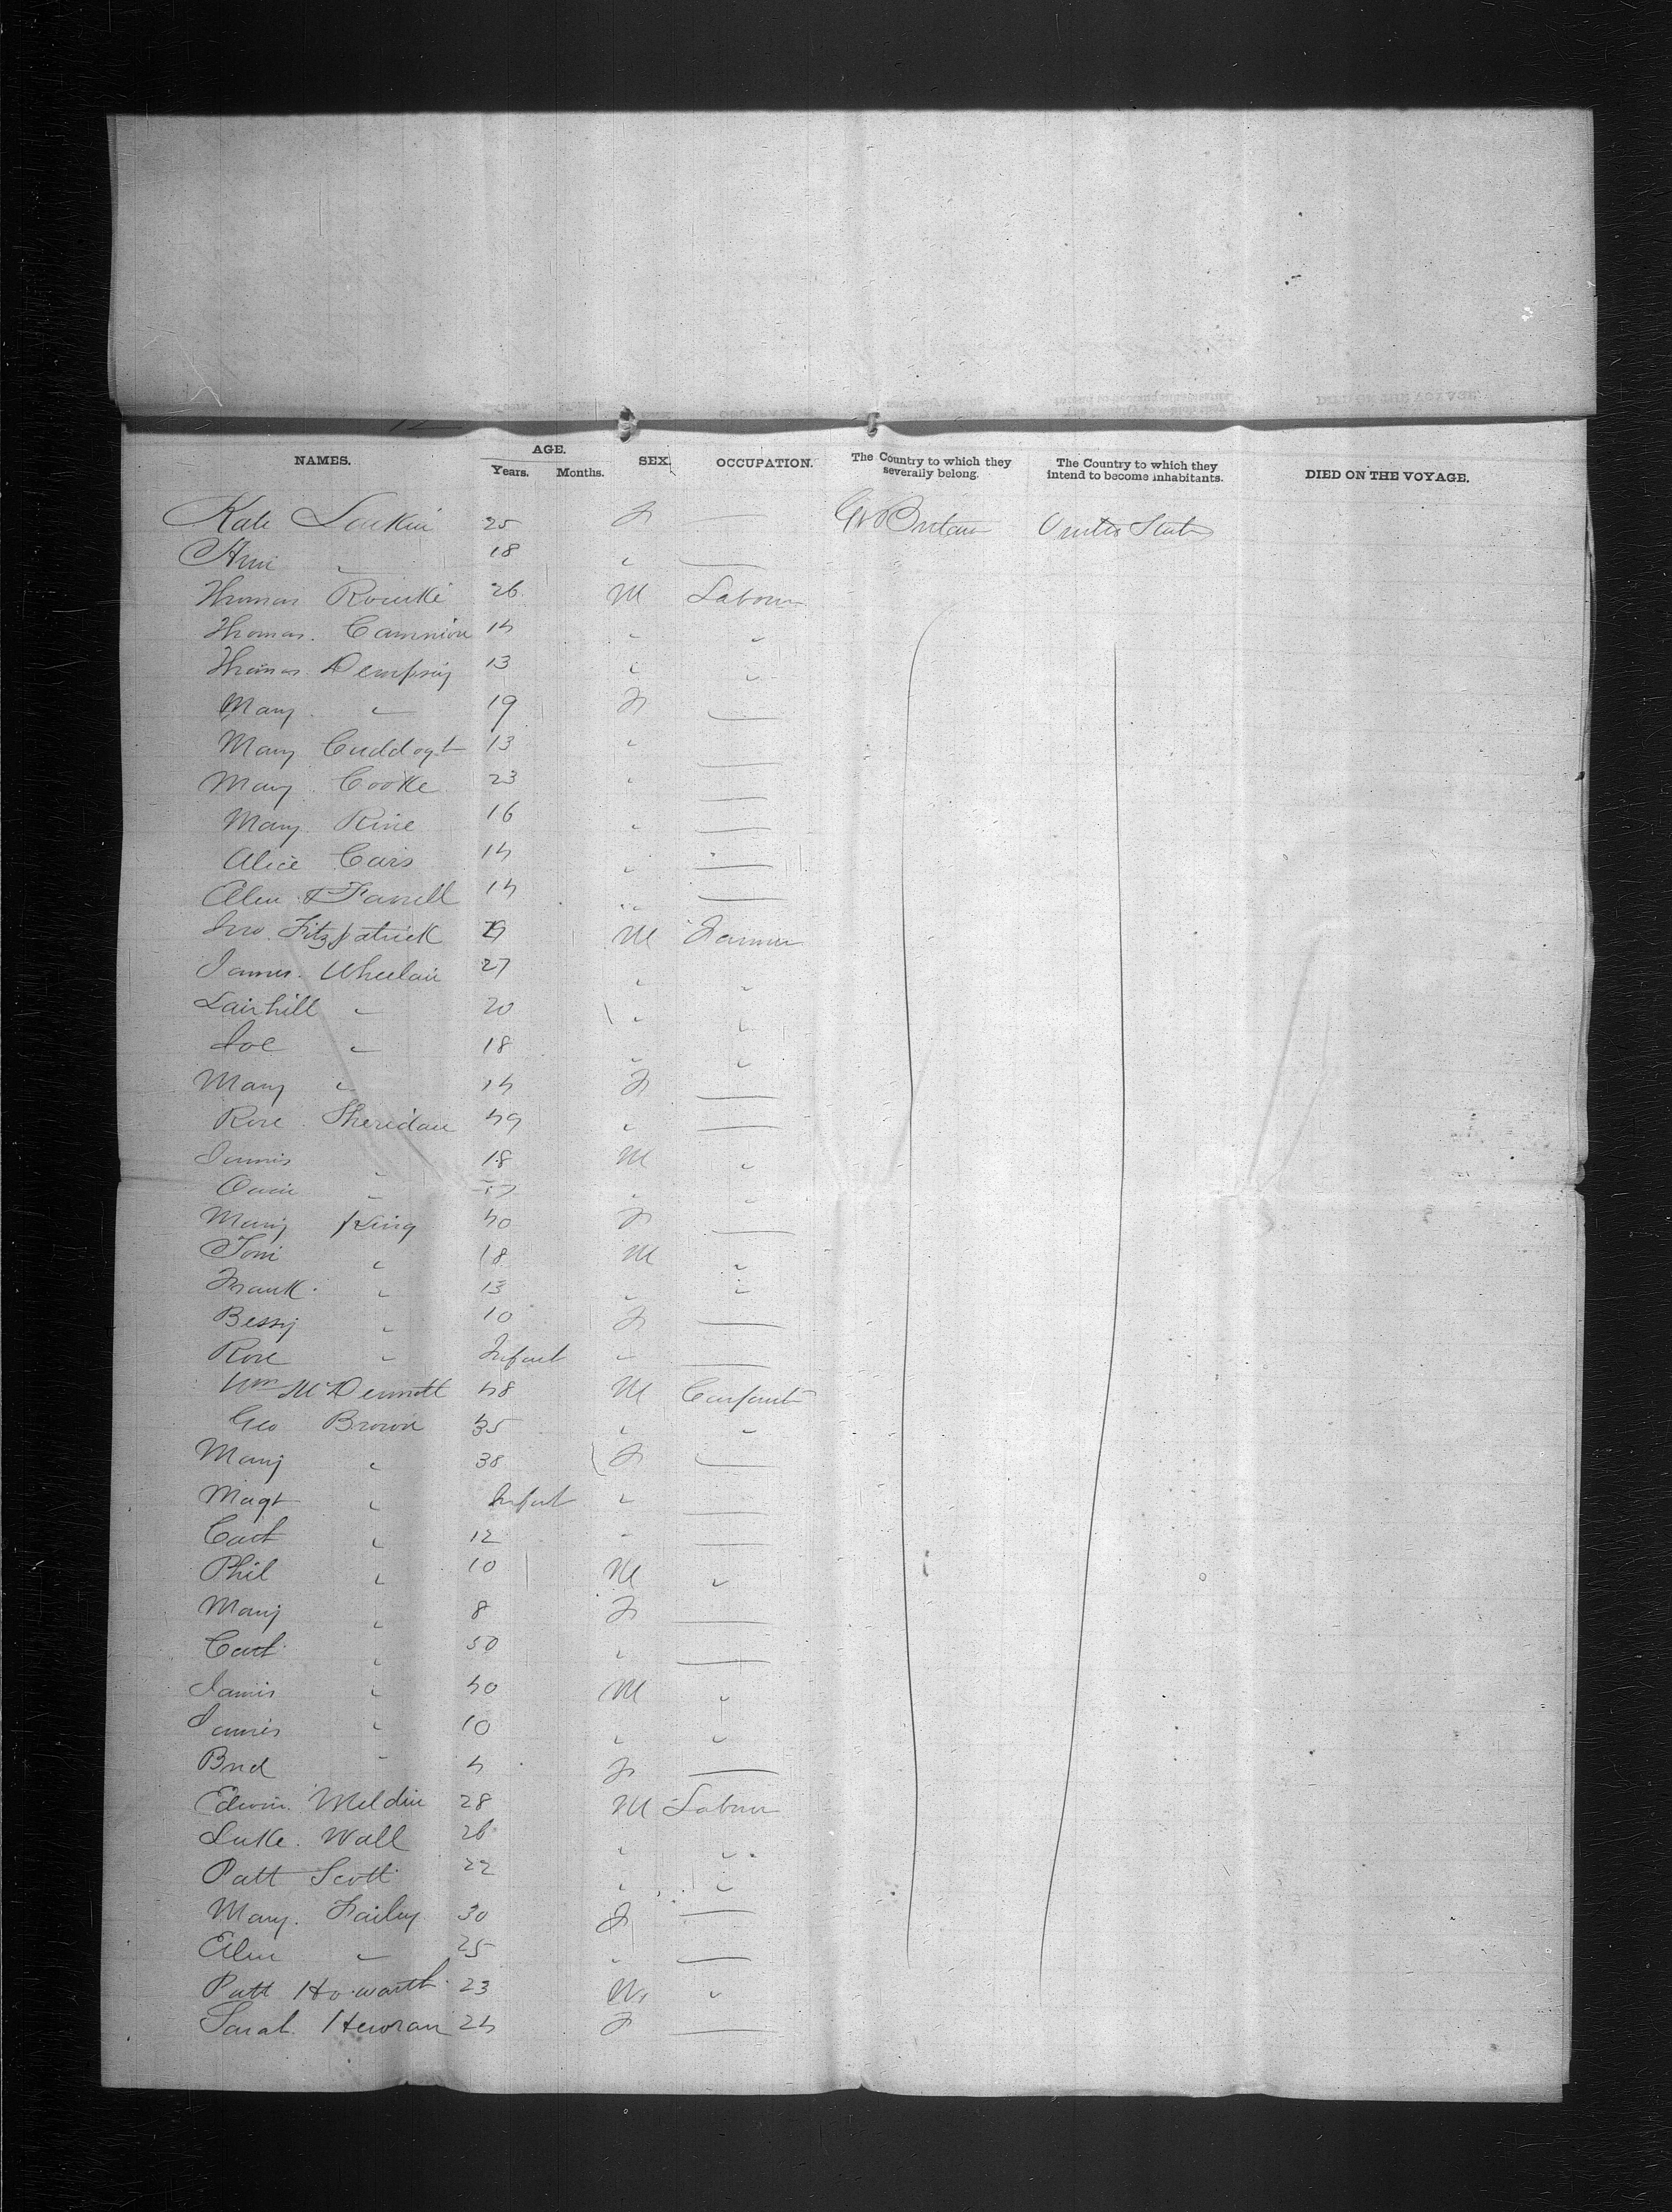 NAMES. AGE. Years. Months. SEX. OCCUPATION. The Country to which they severally belong. The Country to which they intend to become inhabitants. DIED ON THE VOYAGE.
Kate Larkin 25 F — Gt Britain United States
Ann " 18 " —
Thomas Rourke 26 M Labour
Thomas 14 " "
Thomas Dempsey 13 " "
Mary " 19 F —
Mary 13 " —
Mary Cooke 23 " —
Mary Rine 16 " —
Alice 14 " —
Ellen Farrell 14 " —
Jno. Fitzpatrick M Farmer
James Wheelan 27 " "
" 20 " "
Joe " 18 " "
Mary " 14 F —
Rose Sheridan 49 " —
18 M "
" " "
Mary King 40 F —
Tom " 18 M "
Frank " 13 " "
Bessy " 10 F —
Rose " Infant " —
Wm McDermott 48 M Carpent
Geo Brown 35 " "
Mary " 38 F —
Magt " Infant " —
Cath " 12 " —
Phil " 10 M "
Mary " 8 F —
Cath " 50 " —
James " 40 M "
James " 10 " "
Brid " 4 F —
Edwin 28 M Labour
Luke Wall 26 " "
Patt Scott 22 " "
Mary 30 F —
Ellen " 25 " —
Patt Howarth 23 M "
Sarah 24 F —